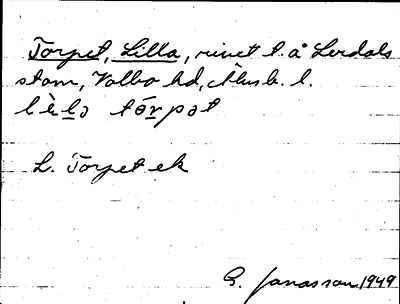 Torpet, Lilla, rivet t. å Lerdals
stom, Valbo hd, Älvsb. l.
lìlə tórpət
L. Torpet ek
G. Jonasson 1949